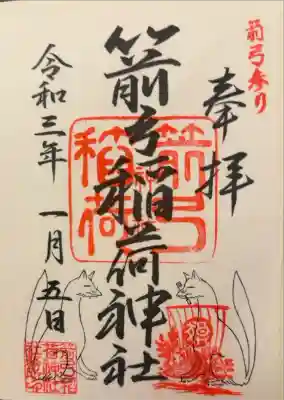 箭弓参り
奉拝
箭弓稲荷神社
箭弓稲荷
令和三年 一月 五日
福